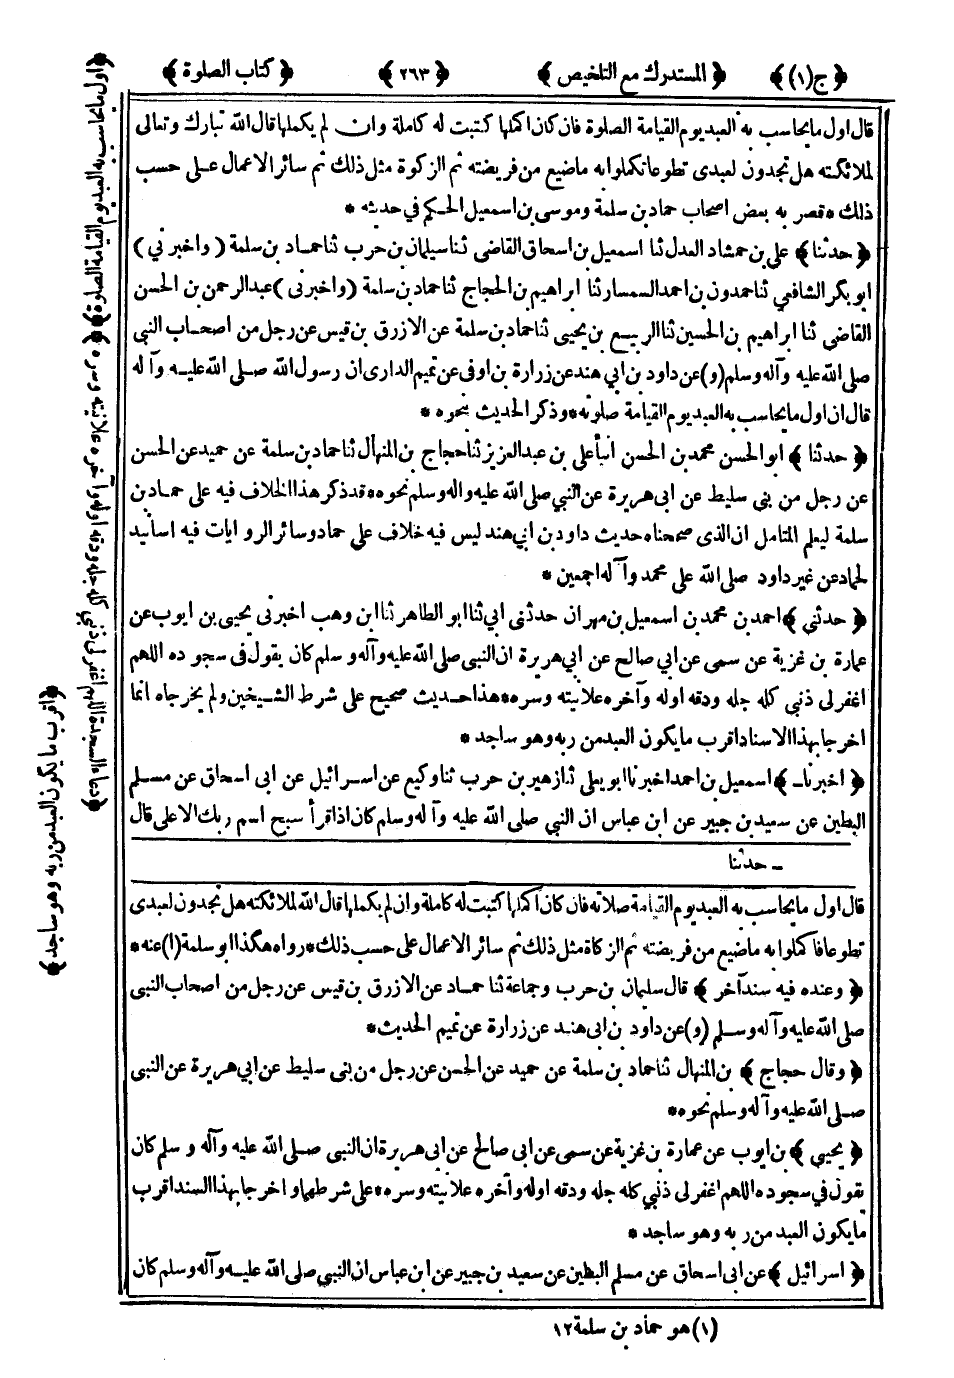 ﴿ ج(١)﴾ ﴿ المستدرك مع التلخيص ﴾ ﴿ ٢٦٣ ﴾ ﴿ كتاب الصلوة ﴾
قال اول مايحاسب به العبد يوم القيامة الصلوة فان كان اكملها كتبت له كاملة وان لم يكملها قال الله تبارك وتعالى
لملائكته هل تجدون لعبدى تطوعا تكملوا به ماضيع من فريضته ثم الزكوة مثل ذلك ثم سائر الاعمال على حسب
ذلك * قصر به بعض اصحاب حماد بن سلمة وموسى بن اسمعيل الحكم في حديثه *
﴿ حدثنا ﴾ على بن حمشاد العدل ثنا اسمعيل بن اسحاق القاضى ثنا سليمان بن حرب ثنا حماد بن سلمة ( واخبرني )
ابوبكر الشافعي ثنا حمدون بن احمد السمسار ثنا ابراهيم بن الحجاج ثنا حماد بن سلمة (واخبرنى) عبدالرحمن بن الحسن
القاضى ثنا ابراهيم بن الحسين ثنا الربيع بن يحيى ثنا حماد بن سلمة عن الازرق بن قيس عن رجل من اصحاب النبي
صلى الله عليه وآله وسلم (و) عن داود بن ابي هند عن زرارة بن اوفى عن تميم الدارى ان رسول الله صلى الله عليه وآله
قال ان اول مايحاسب به العبد يوم القيامة صلوته * وذكر الحديث بنحوه *
﴿ حدثنا ﴾ ابوالحسن محمد بن الحسن انبأ على بن عبدالعزيز ثنا حجاج بن المنهال ثنا حماد بن سلمة عن حميد عن الحسن
عن رجل من بني سليط عن ابى هريرة عن النبي صلى الله عليه واله وسلم نحوه * قد ذكر هذا الخلاف فيه على حماد بن
سلمة ليعلم المتامل ان الذى صححناه حديث داود بن ابي هند ليس فيه خلاف على حماد وسائر الروايات فيه اسانيد
لحماد عن غير داود صلى الله على محمد وآله اجمعين *
﴿ حدثني ﴾ احمد بن محمد بن اسمعيل بن مهران حدثنى ابي ثنا ابو الطاهر ثنا ابن وهب اخبرنى يحيى بن ايوب عن
عمارة بن غزية عن سمى عن ابي صالح عن ابي هريرة ان النبى صلى الله عليه وآله وسلم كان يقول فى سجوده اللهم
اغفر لى ذنبي كله جله ودقه اوله وآخره علانيته وسره * هذا حديث صحيح على شرط الشيخين ولم يخرجاه انما
اخرجا بهذا الاسناد اقرب مايكون العبد من ربه وهو ساجد *
﴿ اخبرنا ـ ﴾ اسمعيل بن احمد اخبرنا ابو يعلى ثنا زهير بن حرب ثنا وكيع عن اسرائيل عن ابى اسحاق عن مسلم
البطين عن سعيد بن جبير عن ابن عباس ان النبي صلى الله عليه وآله وسلم كان اذا قرأ سبح اسم ربك الاعلى قال
ـ حدثنا
قال اول مايحاسب به العبد يوم القيامة صلاته فان كان اكملها كتبت له كاملة وان لم يكملها قال الله لملائكته هل تجدون لعبدى
تطوعا فاكملوا به ماضيع من فريضته ثم الزكاة مثل ذلك ثم سائر الاعمال على حسب ذلك * رواه هكذا ابو سلمة (١) عنه *
﴿ وعنده فيه سند آخر ﴾ قال سليمان بن حرب وجماعة ثنا حماد عن الازرق بن قيس عن رجل من اصحاب النبى
صلى الله عليه وآله وسلم (و) عن داود بن ابى هند عن زرارة عن تميم الحديث *
﴿ وقال حجاج ﴾ بن المنهال ثنا حماد بن سلمة عن حميد عن الحسن عن رجل من بنى سليط عن ابي هريرة عن النبى
صلى الله عليه وآله وسلم نحوه *
﴿ يحيى ﴾ بن ايوب عن عمارة بن غزية عن سمى عن ابى صالح عن ابى هريرة ان النبى صلى الله عليه وآله وسلم كان
يقول في سجوده اللهم اغفر لى ذنبي كله جله ودقه اوله وآخره علانيته وسره * على شرطهما واخرجا بهذا السند اقرب
مايكون العبد من ربه وهو ساجد *
﴿ اسرائيل ﴾ عن ابى اسحاق عن مسلم البطين عن سعيد بن جبير عن ابن عباس ان النبي صلى الله عليه وآله وسلم كان
(١) هو حماد بن سلمة ١٢
﴿ اول مايحاسب به العبد يوم القيامة الصلوة ﴾ ﴿ دعاء السجدة اللهم اغفر لى ذنبي كله جله ودقه اوله وآخره علانيته وسره ﴾
﴿ اقرب مايكون العبد من ربه وهو ساجد ﴾